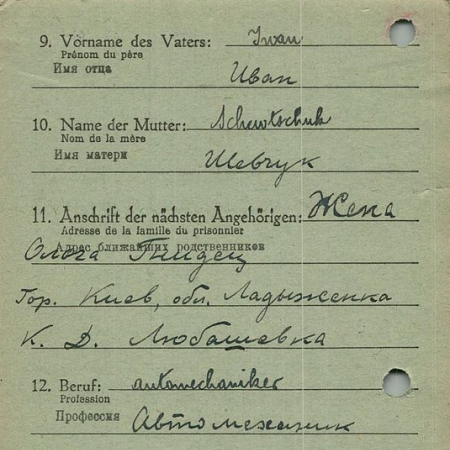 9. Vorname des Vaters: Iwan
Prénom du père
Имя отца
Иван
10. Name der Mutter: Schewtschuk
Nom de la mère
Имя матери
Шевчук
11. Anschrift der nächsten Angehörigen: Жена
Adresse de la famille du prisonnier
Адрес ближайших родственников
Ольга
Гор. Киев, обл. Ладыженка
К. Д. Любашевка
12. Beruf: automechaniker
Profession
Профессия
Автомеханик